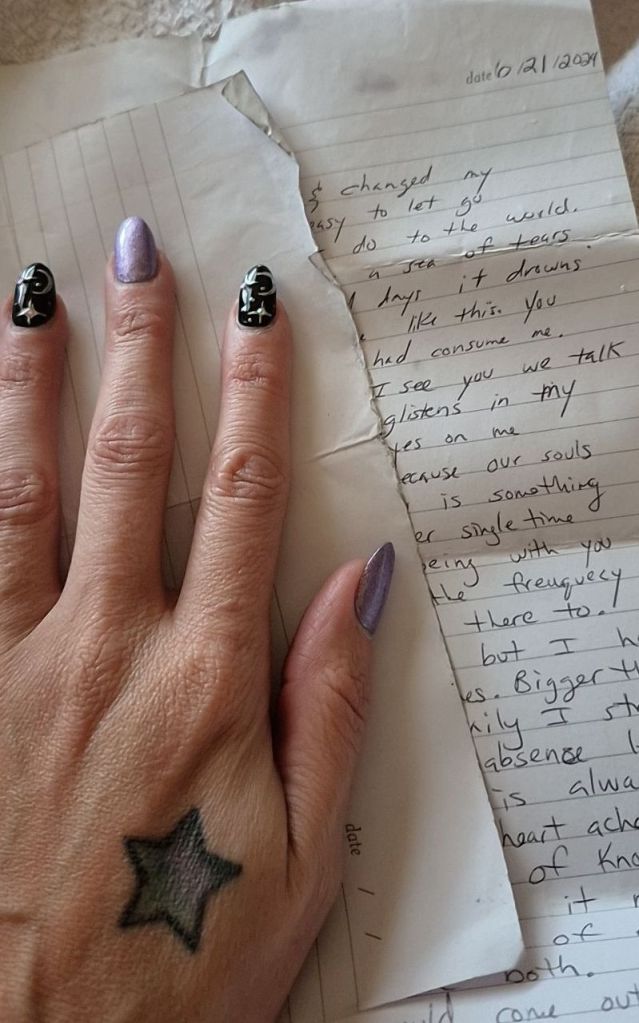 date 6/21/2024
& changed my
easy to let go
do to the world.
a sea of tears.
days it drowns
like this. You
had consume me.
I see you we talk
glistens in my
yes on me
ecause our souls
is something
er single time
being with you
the freuquecy
there to.
but I h
es. Bigger th
ily I str
absense
is alwa
heart ache
of Kno
it
of
both.
ould come out
date / /